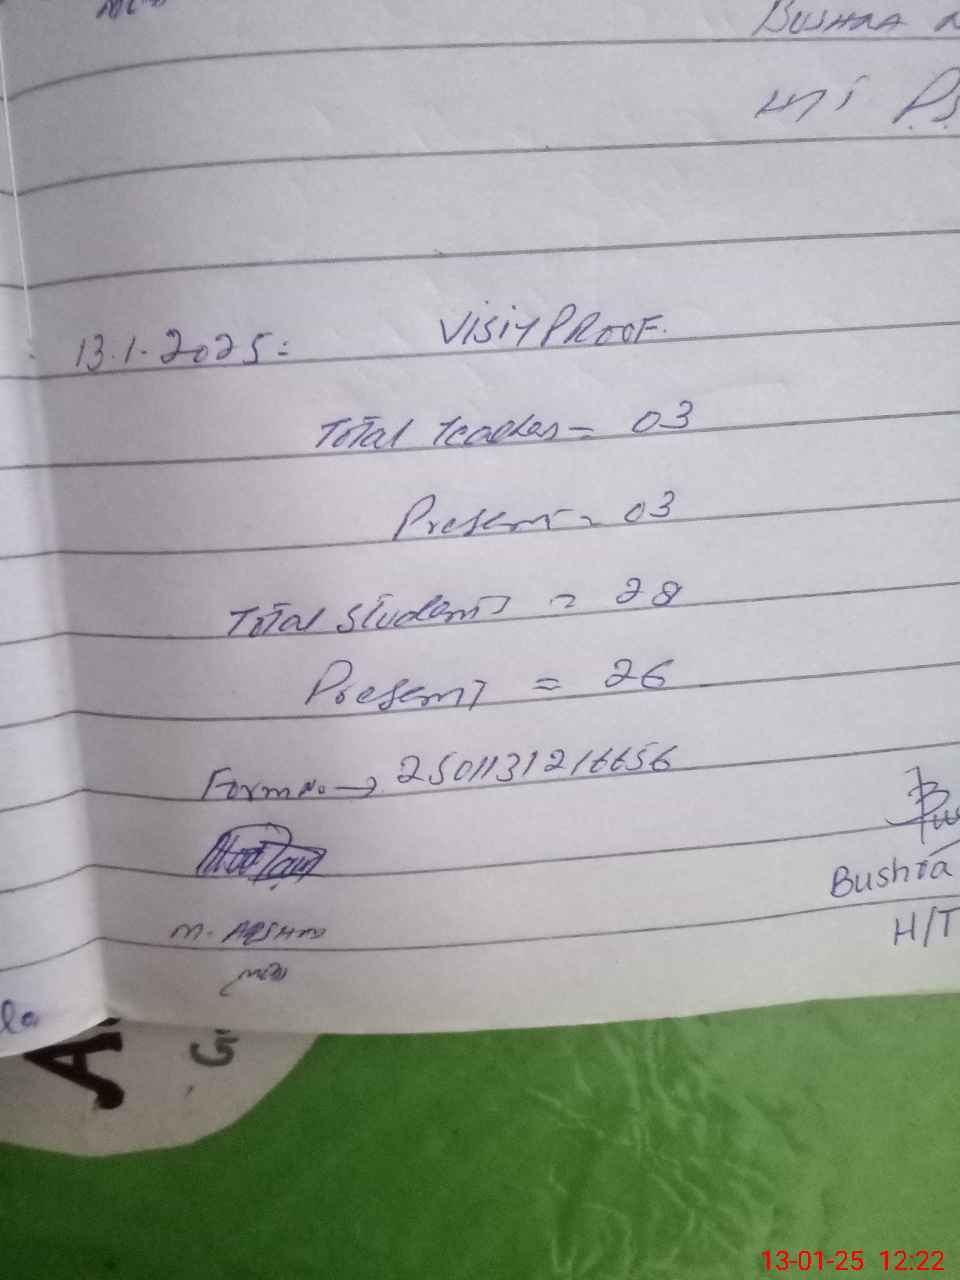 BUSHRA
H/T PS
13.1.2025: VISIT PROOF.
Total Teachers = 03
Present = 03
Total Students = 28
Present = 26
Form No. → 2501131216656
M. ARSHAD
Bushra
H/T
13-01-25 12:22